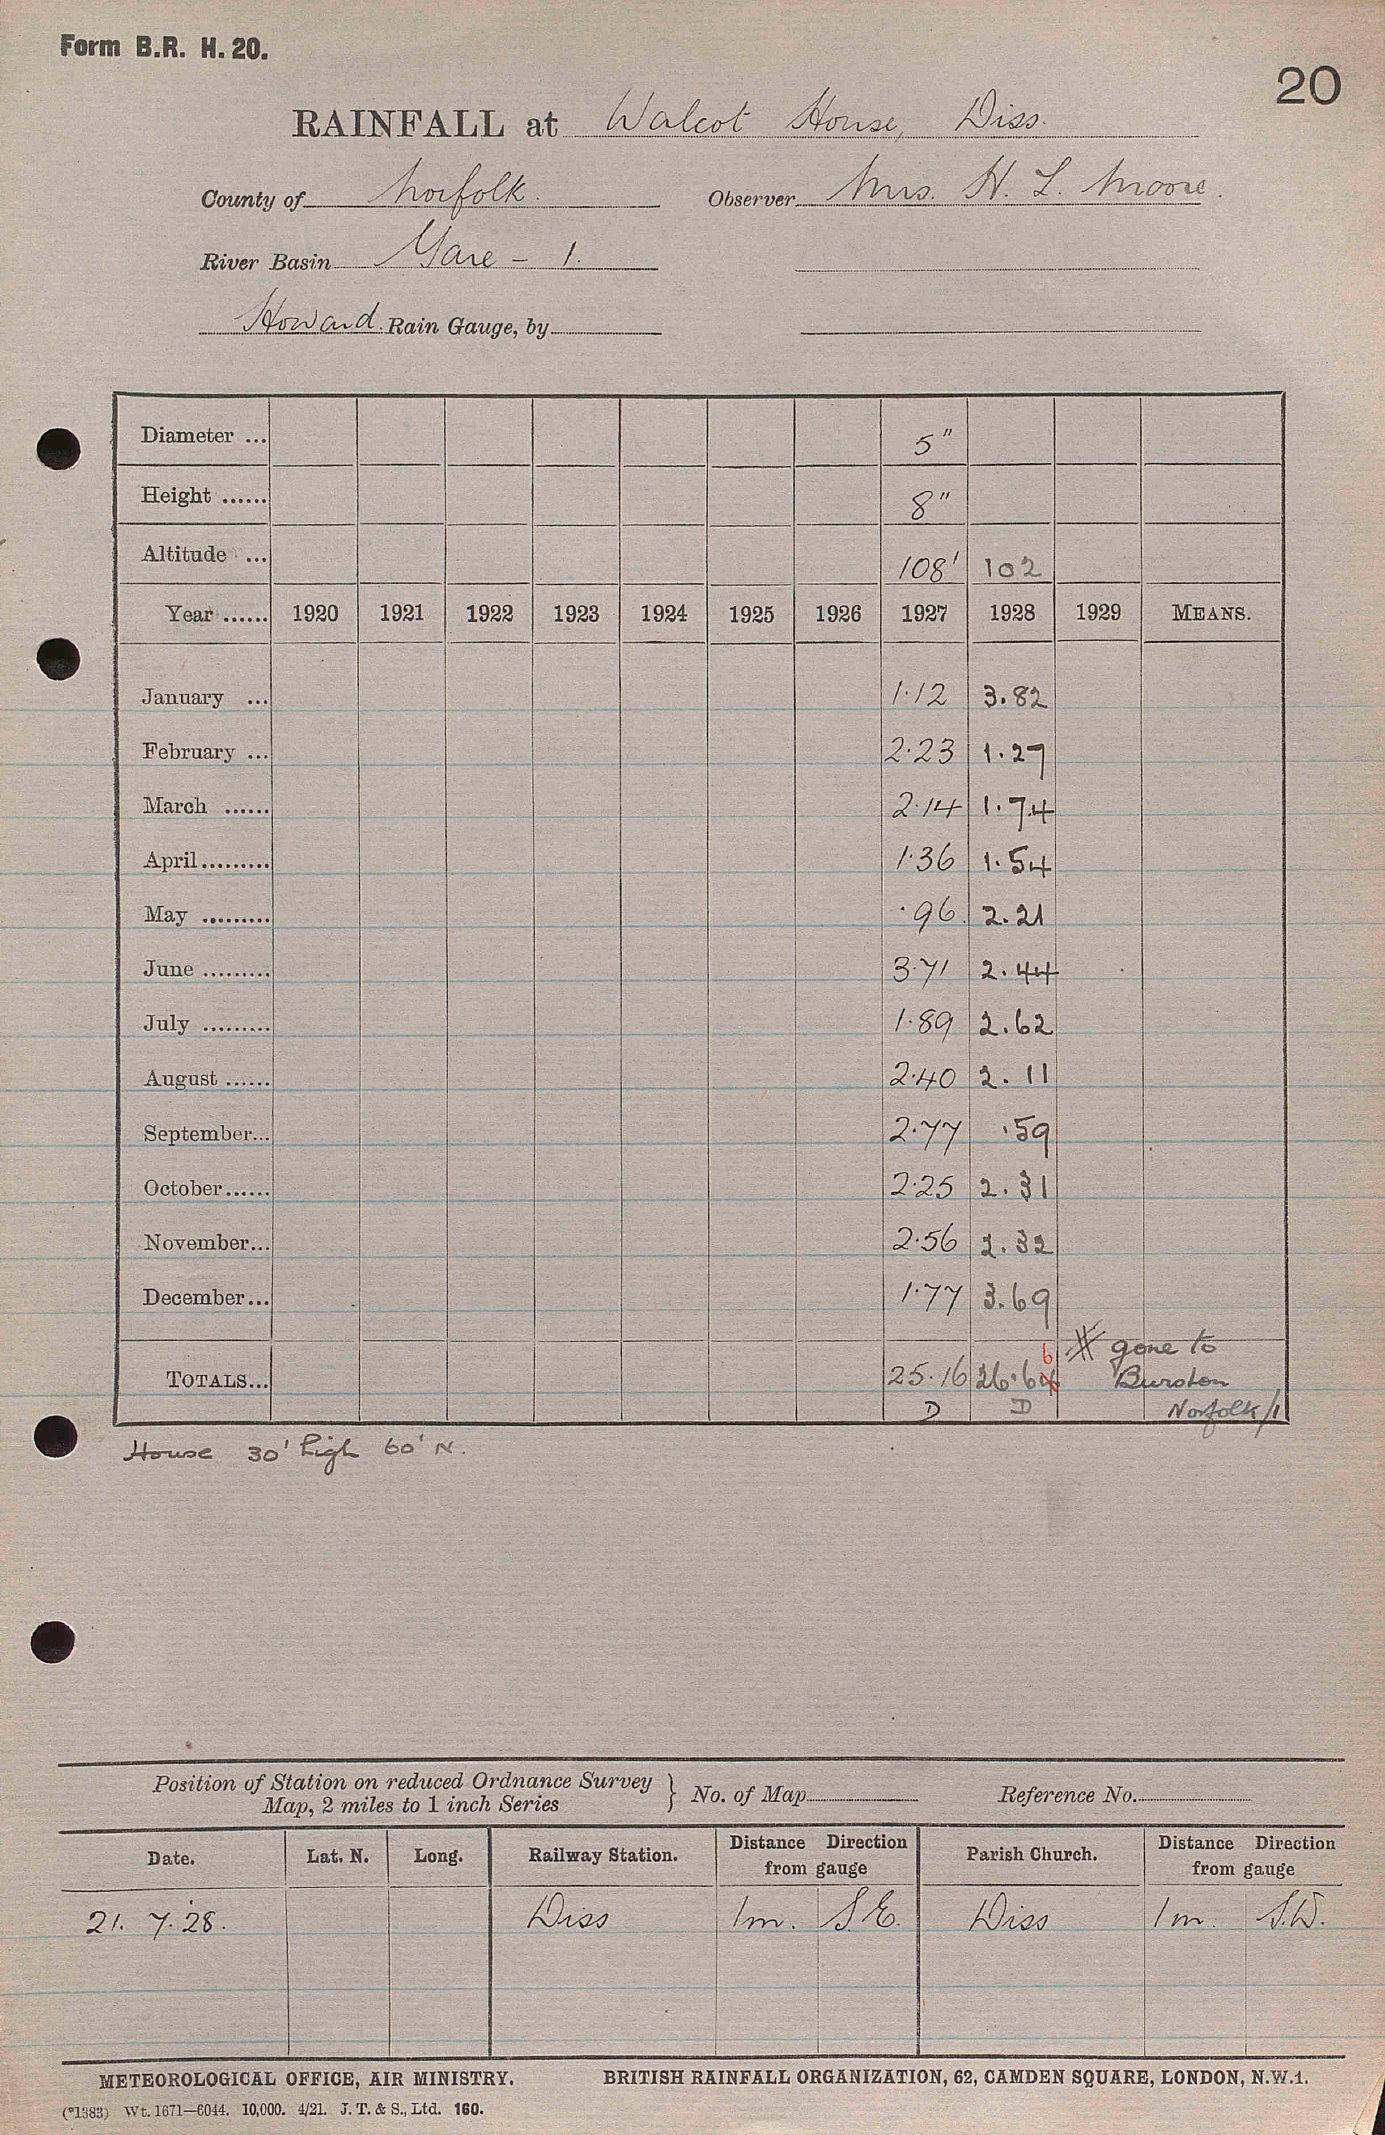 Form B.R. H. 20.
20
RAINFALL at Walcot House, Diss.
County of Norfolk. Observer Mrs. H. L. Moore.
River Basin Yare - 1.
Howard. Rain Gauge, by
Diameter ... 5"
Height ...... 8"
Altitude ... 108' 102
Year ...... 1920 1921 1922 1923 1924 1925 1926 1927 1928 1929 MEANS.
January ... 1.12 3.82
February ... 2.23 1.27
March ...... 2.14 1.74
April ......... 1.36 1.54
May ......... .96 2.21
June ......... 3.71 2.44
July ......... 1.89 2.62
August ...... 2.40 2.11
September... 2.77 .59
October...... 2.25 2.31
November... 2.56 2.32
December... 1.77 3.69
6 gone to
TOTALS... 25.16 26.64 Burston
D D Norfolk/1
House 30' high 60' N.
Position of Station on reduced Ordnance Survey
Map, 2 miles to 1 inch Series } No. of Map Reference No.
Date. Lat. N. Long. Railway Station. Distance Direction from gauge Parish Church. Distance Direction from gauge
21. 7. 28. Diss 1m. S.E. Diss 1m. S.W.
METEOROLOGICAL OFFICE, AIR MINISTRY. BRITISH RAINFALL ORGANIZATION, 62, CAMDEN SQUARE, LONDON, N.W.1.
(*1383) Wt. 1671—6044. 10,000. 4/21. J. T. & S., Ltd. 160.